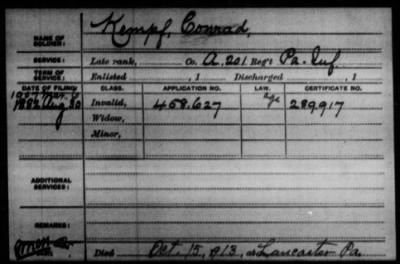 Kempf, Conrad,
NAME OF SOLDIER:
SERVICE: Late rank, Co. A. 201 Reg't Pa. Inf.
TERM OF SERVICE: Enlisted , 1 Discharged , 1
DATE OF FILING: CLASS. APPLICATION NO. LAW. CERTIFICATE NO.
1882 Aug 30 Invalid, 458.627 289917
Widow,
Minor,
ADDITIONAL SERVICES:
REMARKS:
Died Oct. 15, 1913, at Lancaster Pa.